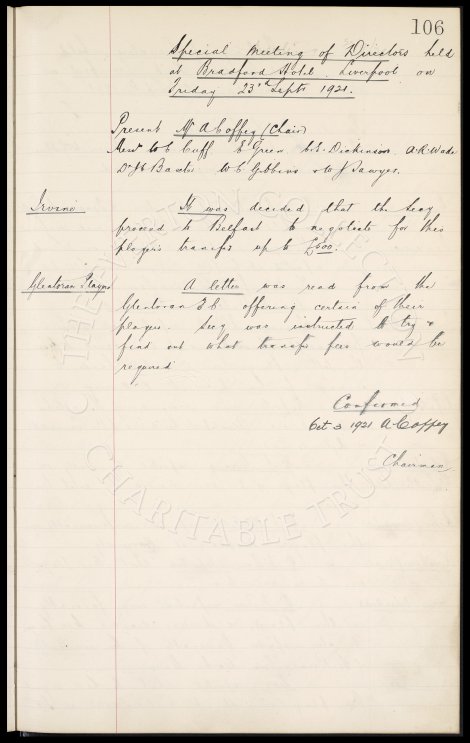 106
Special Meeting of Directors held
at Bradford Hotel. Liverpool on
Friday 23rd Sept 1921.
Present Mr A Coffey (Chair)
Messrs W C Cuff E Green H. E. Dickinson A. R. Wade
Dr J C Baxter W C Gibbins & W J Sawyer.
Irvine
It was decided that the Secy
proceed to Belfast to negotiate for this
player's transfer up to £500.
Glentoran Players
A letter was read from the
Glentoran F C offering certain of their
players. Secy was instructed to try &
find out what transfer fees would be
required
Confirmed
Oct 3 1921 A Coffey
Chairman
THE EVERTON COLLECTION
CHARITABLE TRUST